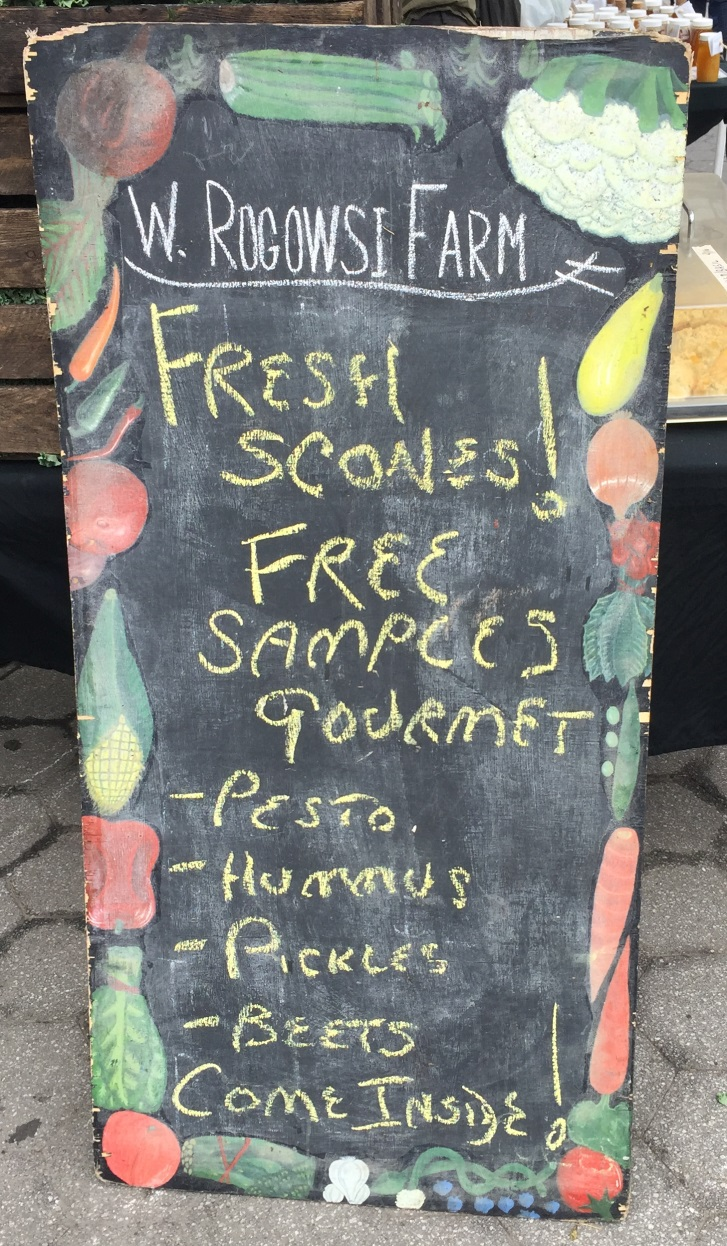 W. ROGOWSI FARM
FRESH
SCONES!
FREE
SAMPLES
GOURMET
- PESTO.
- HUMMUS
- PICKLES
- BEETS
COME INSIDE!